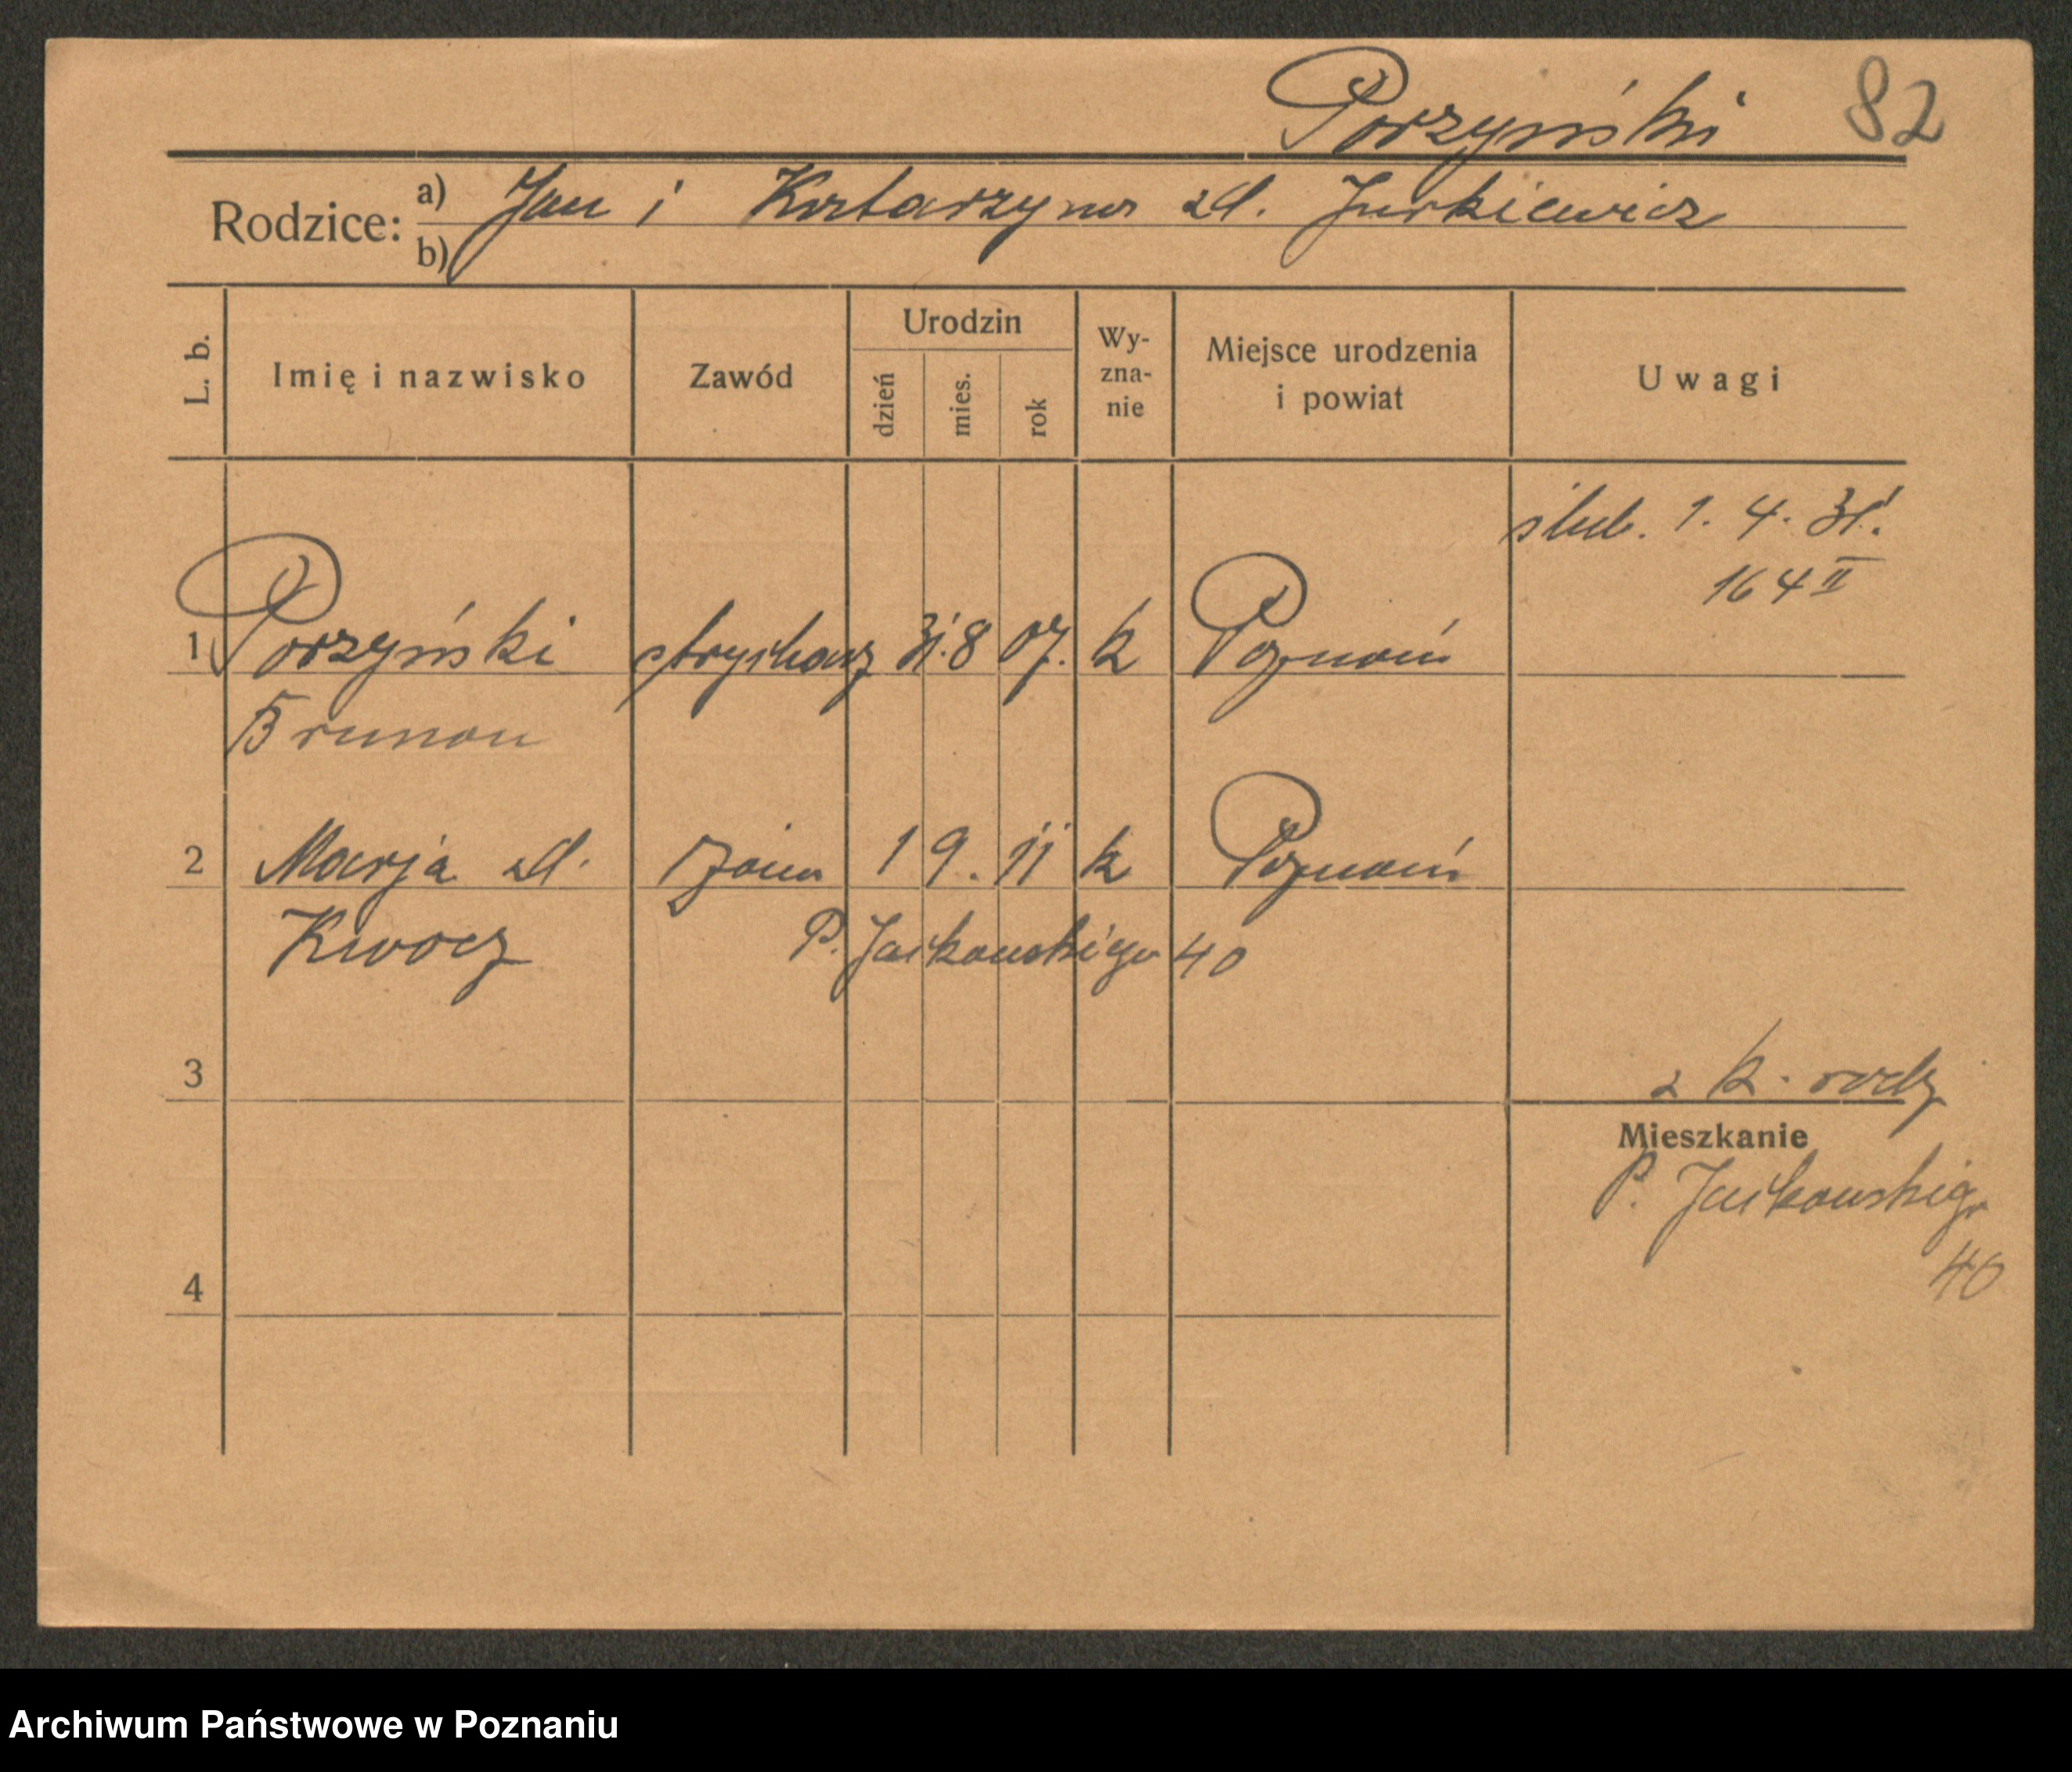 Porzyński 82
Rodzice: a) Jan i Katarzyna zd. Jurkiewicz
b)
L. b. Imię i nazwisko Zawód Urodzin dzień mies. rok Wy-zna-nie Miejsce urodzenia i powiat Uwagi
ślub. 1. 4. 31.
164 II
1 Porzyński 31. 8 07. k Poznań
Brunon
2 Marja zd. żona 19. 11 k Poznań
Kwocz P. Jackowskiego 40
3 z k. rodz
Mieszkanie
P. Jackowskiego
40
4
Archiwum Państwowe w Poznaniu